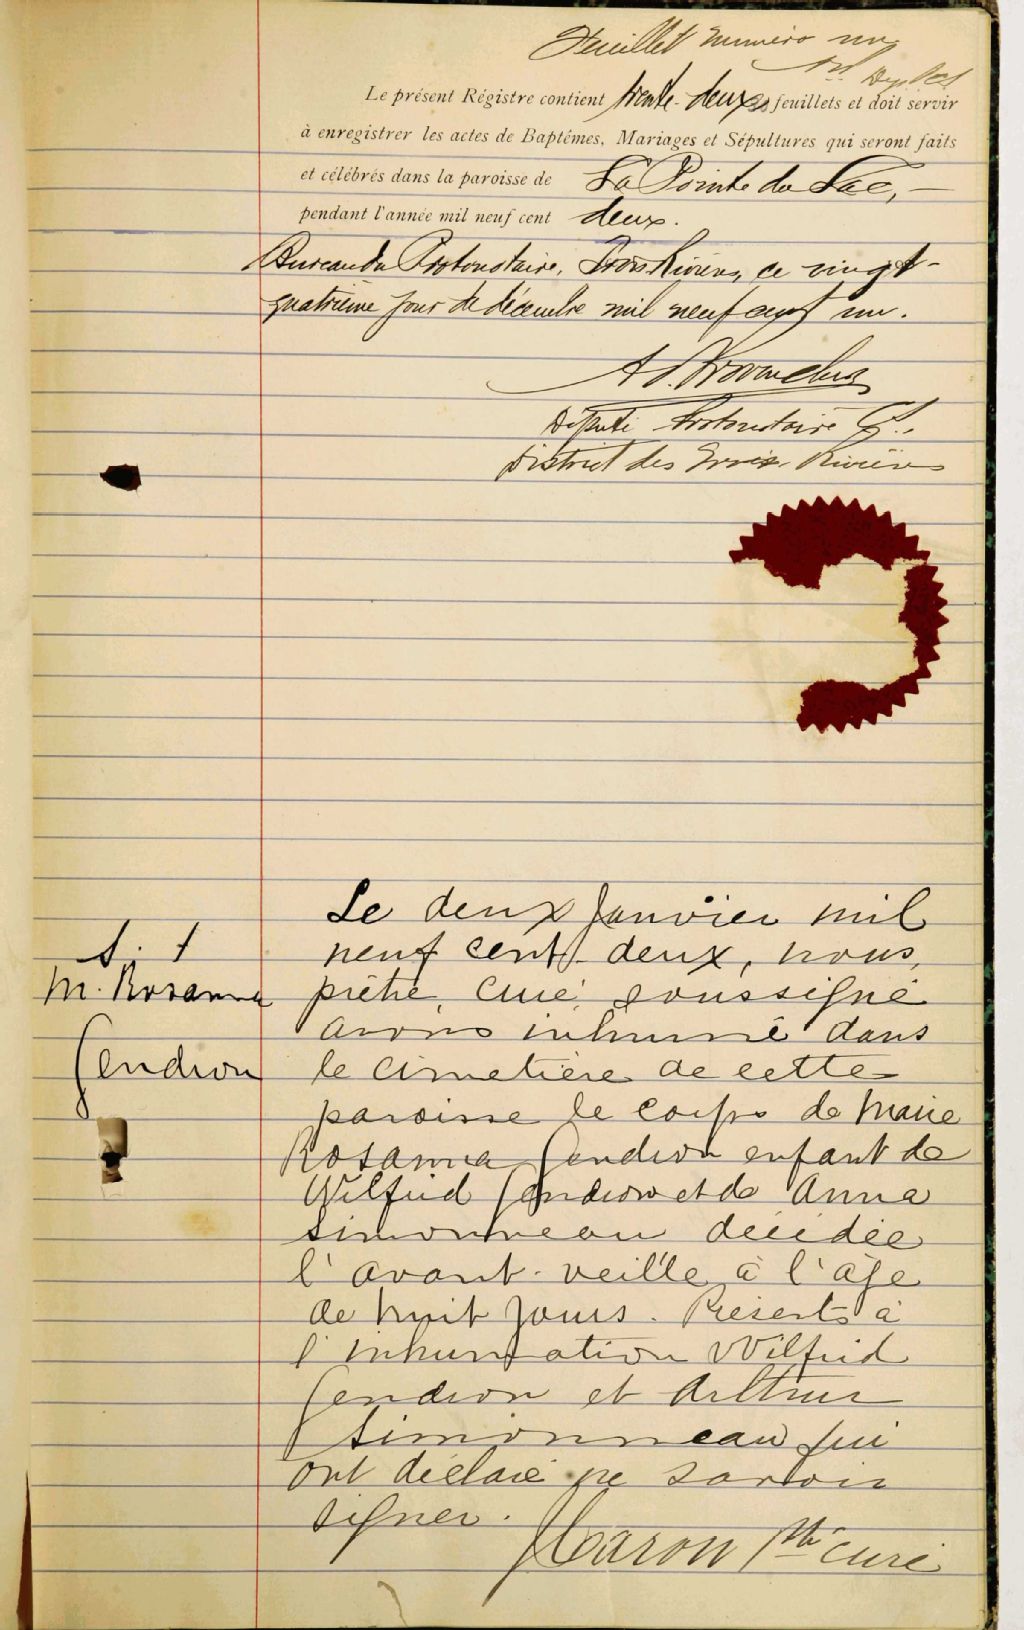 Feuillet numéro un
Le présent Régistre contient trente-deux feuillets et doit servir
à enregistrer les actes de Baptêmes, Mariages et Sépultures qui seront faits
et célébrés dans la paroisse de La Pointe du Lac,
pendant l'année mil neuf cent deux.
Bureau du Protonotaire, Trois Rivières, ce vingt-
quatrième jour de décembre mil neuf cent un.
Député Protonotaire
District des Trois-Rivières
S. 1
M. Rosanna
Gendron
Le deux Janvier mil
neuf cent deux, nous,
prêtre, curé, soussigné
avons inhumé dans
le cimetière de cette
paroisse le corps de Marie
Rosanna Gendron enfant de
Wilfrid Gendron et de Anna
Simonneau décédée
l'avant-veille à l'âge
de huit jours. Présents à
l'inhumation Wilfrid
Gendron et Arthur
Simonneau qui
ont déclaré ne savoir
signer.
Caron Ptre curé